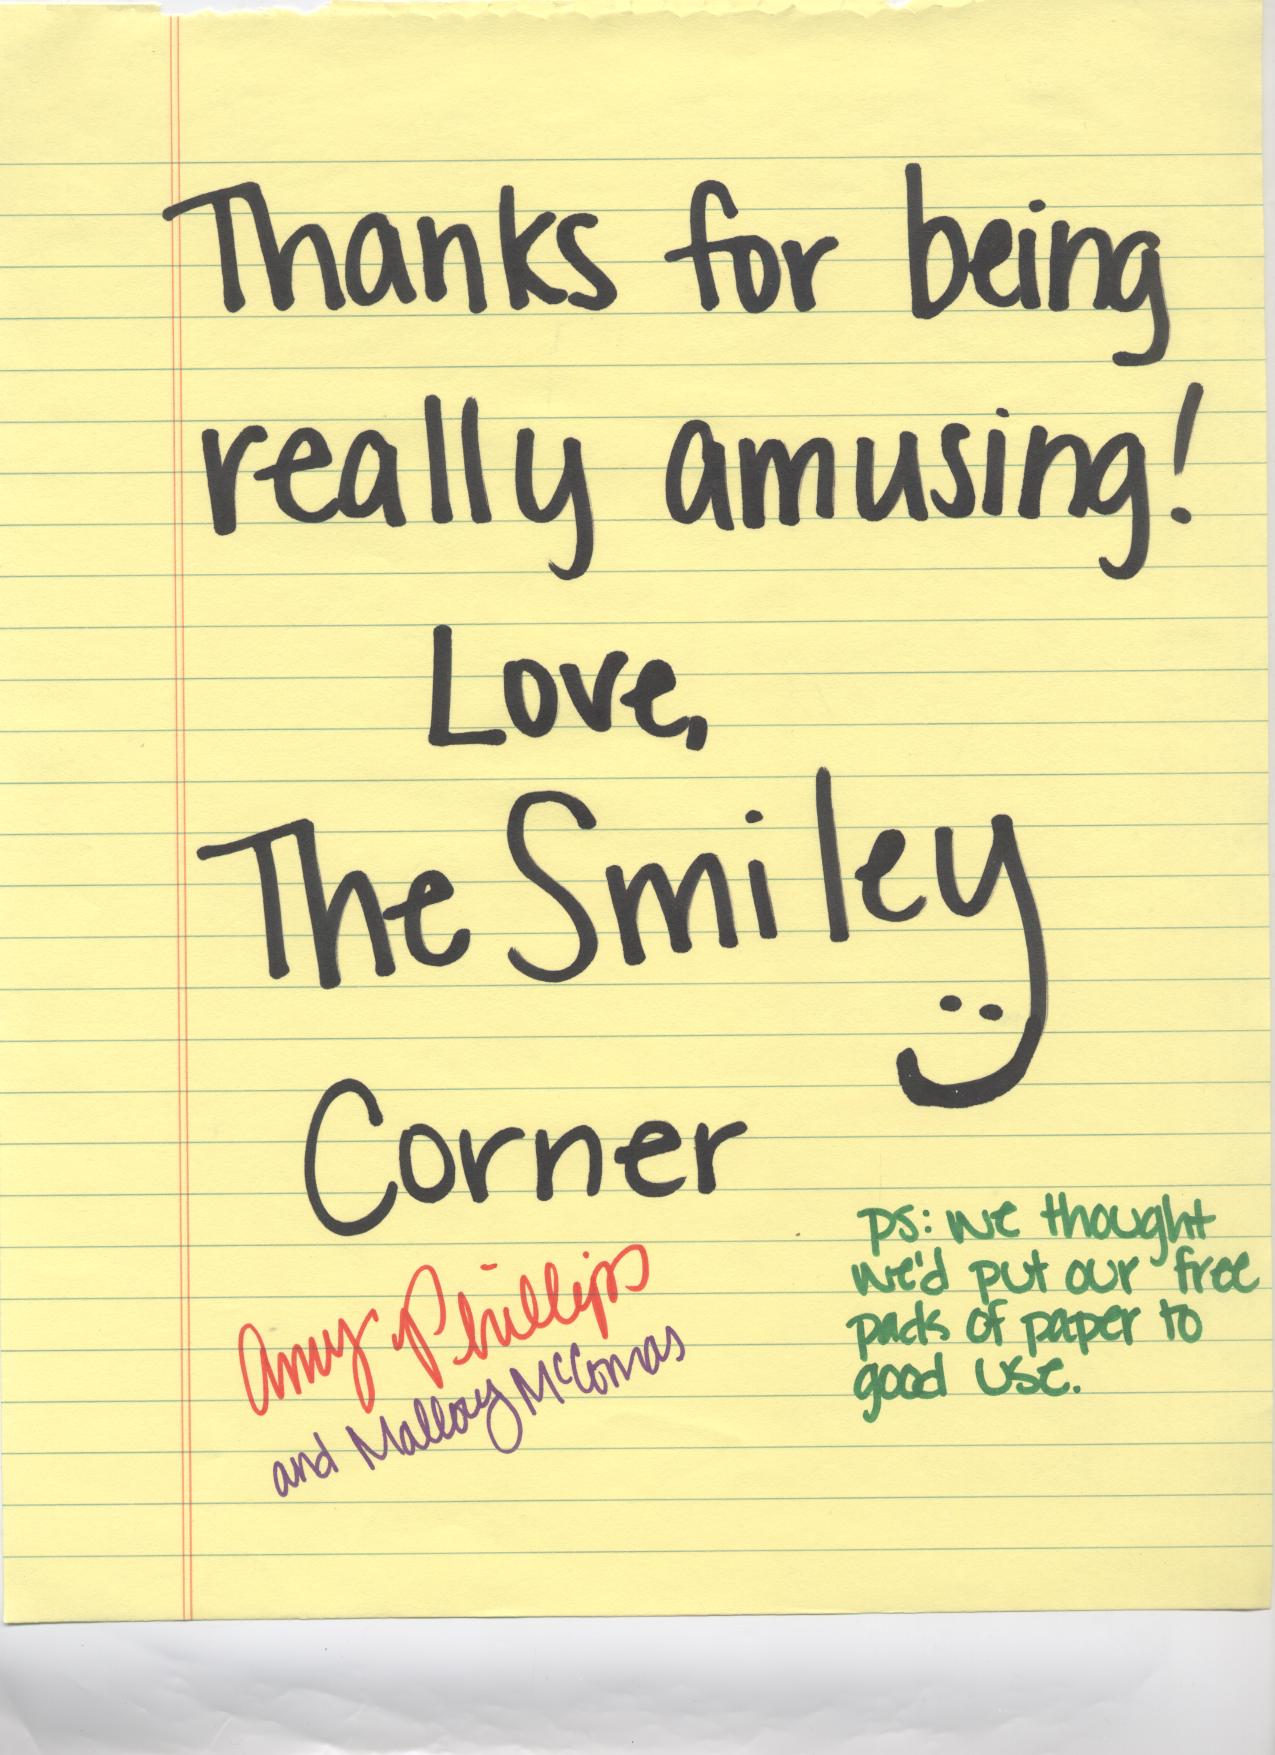 Thanks for being
really amusing!
Love,
The Smiley
Corner
Amy Phillips
and Mallory McComas
ps: we thought
we'd put our free
pack of paper to
good use.